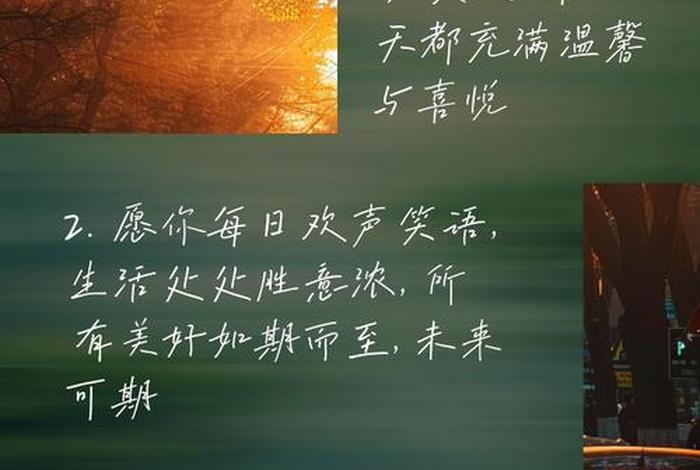 天都充满温馨
与喜悦
2. 愿你每日欢声笑语,
生活处处胜意浓, 所
有美好如期而至, 未来
可期
P